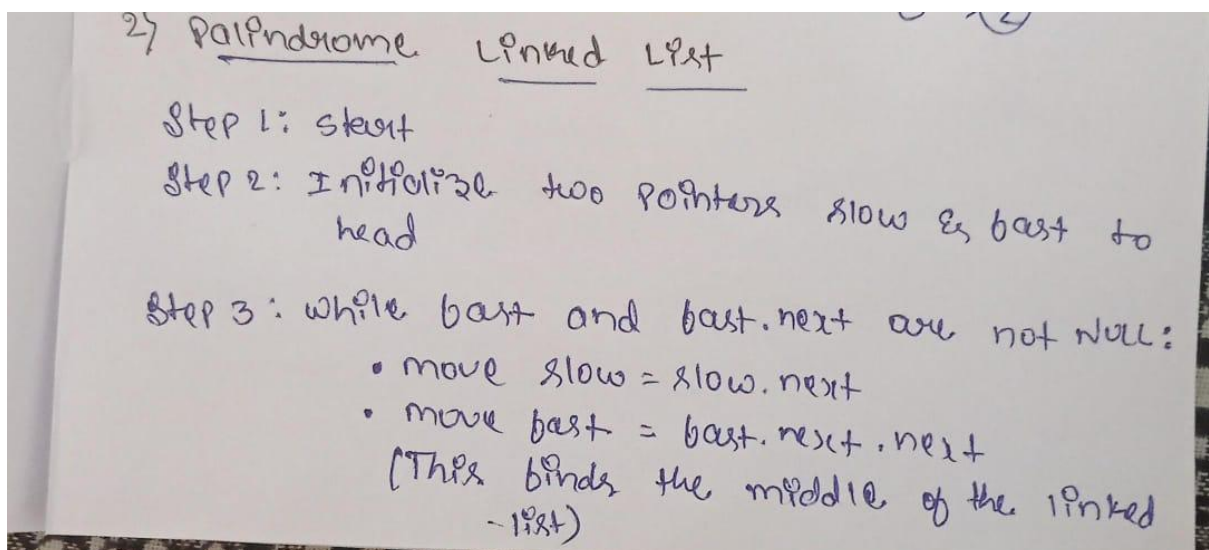 2) Palindrome Linked List
Step 1: start
Step 2: Initialize two pointers slow & fast to
head
Step 3: while fast and fast.next are not NULL:
• move slow = slow.next
• move fast = fast.next.next
(This finds the middle of the linked
-list)